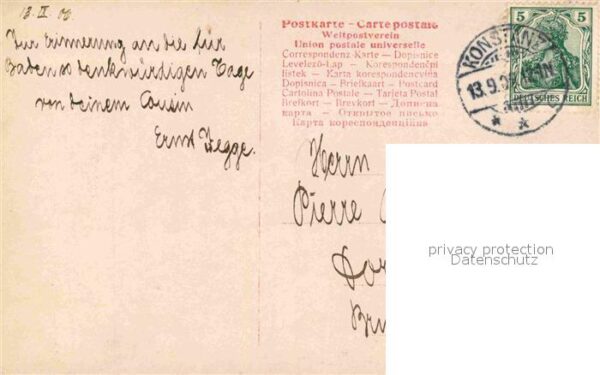 13. IX. 08.
Zur Erinnerung an die für
Baden so denkwürdigen Tage
von deinem Cousin
Ernst Hegge.
Postkarte - Carte postale
Weltpostverein
Union postale universelle
Correspondenz-Karte — Dopisnice
Levelező-Lap — Korespondenční
listek — Karta korespondencyina
Dopisnica — Briefkaart — Postcard
Cartolina Postale — Tarjeta Postal
Brefkort — Brevkort — Дописна
карта — Открытое письмо
Карта кореспонденційна
5 5
DEUTSCHES REICH
KONSTANZ
13.9.
Herrn
Pierre
privacy protection
Datenschutz